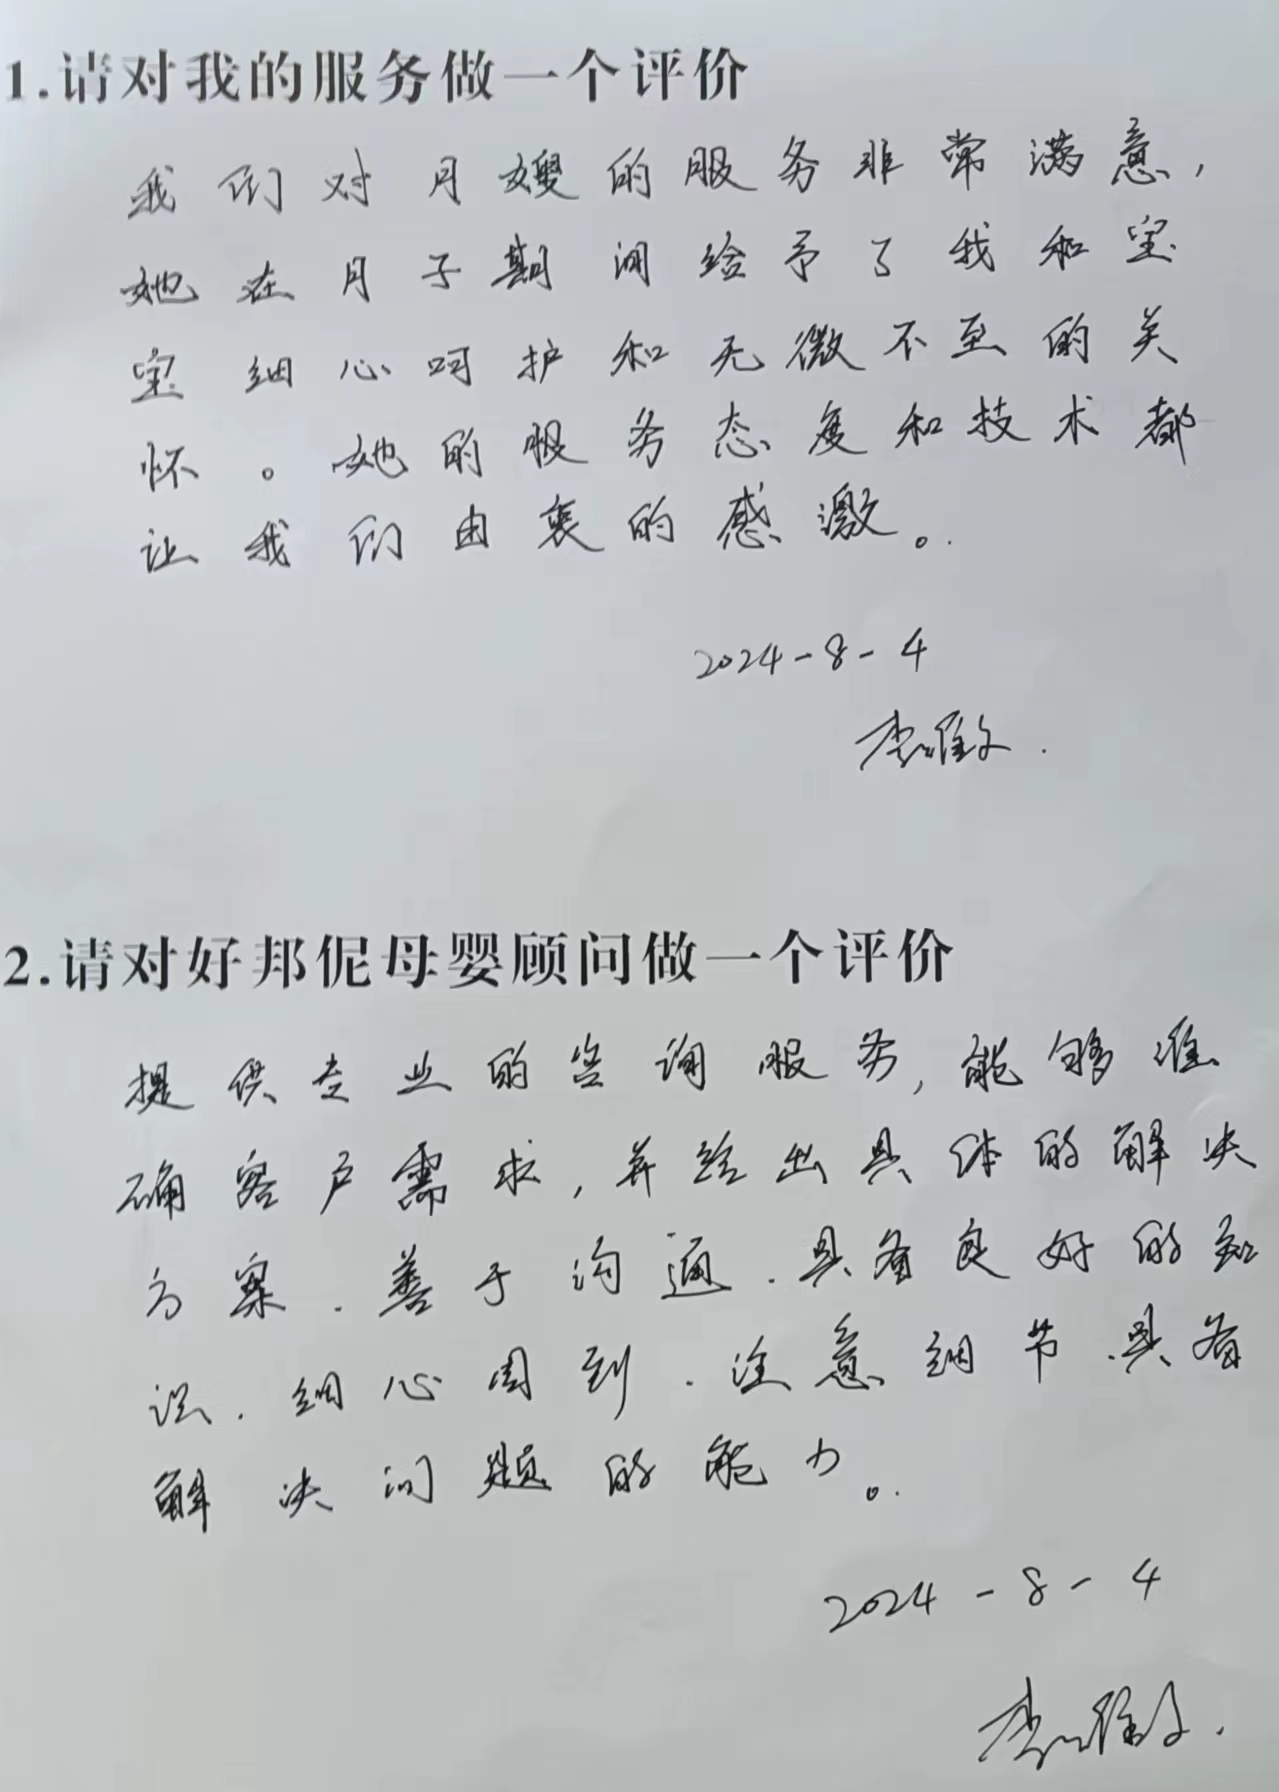 1.请对我的服务做一个评价
我们对月嫂的服务非常满意，
她在月子期间给予了我和宝
宝细心呵护和无微不至的关
怀。她的服务态度和技术都
让我们由衷的感激。
2024-8-4
2.请对好邦伲母婴顾问做一个评价
提供专业的咨询服务，能够准
确客户需求，并给出具体的解决
方案.善于沟通.具备良好的知
识.细心周到.注意细节.具备
解决问题的能力。
2024-8-4